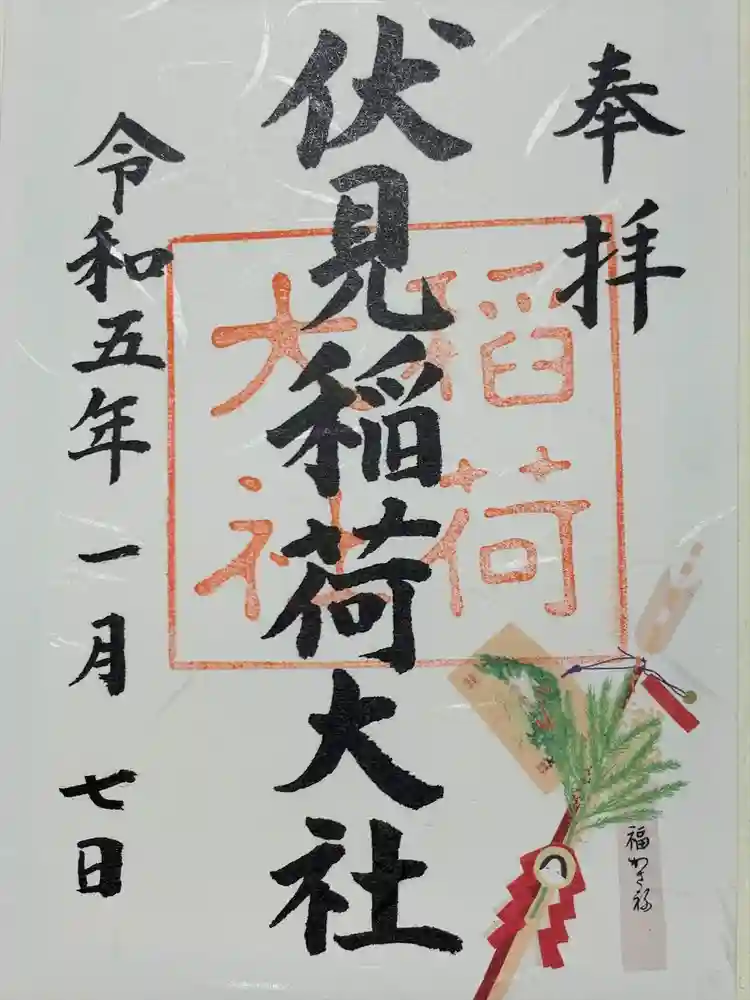 奉拝
伏見稲荷大社
稲荷
大社
令和五年一月七日
福かさね